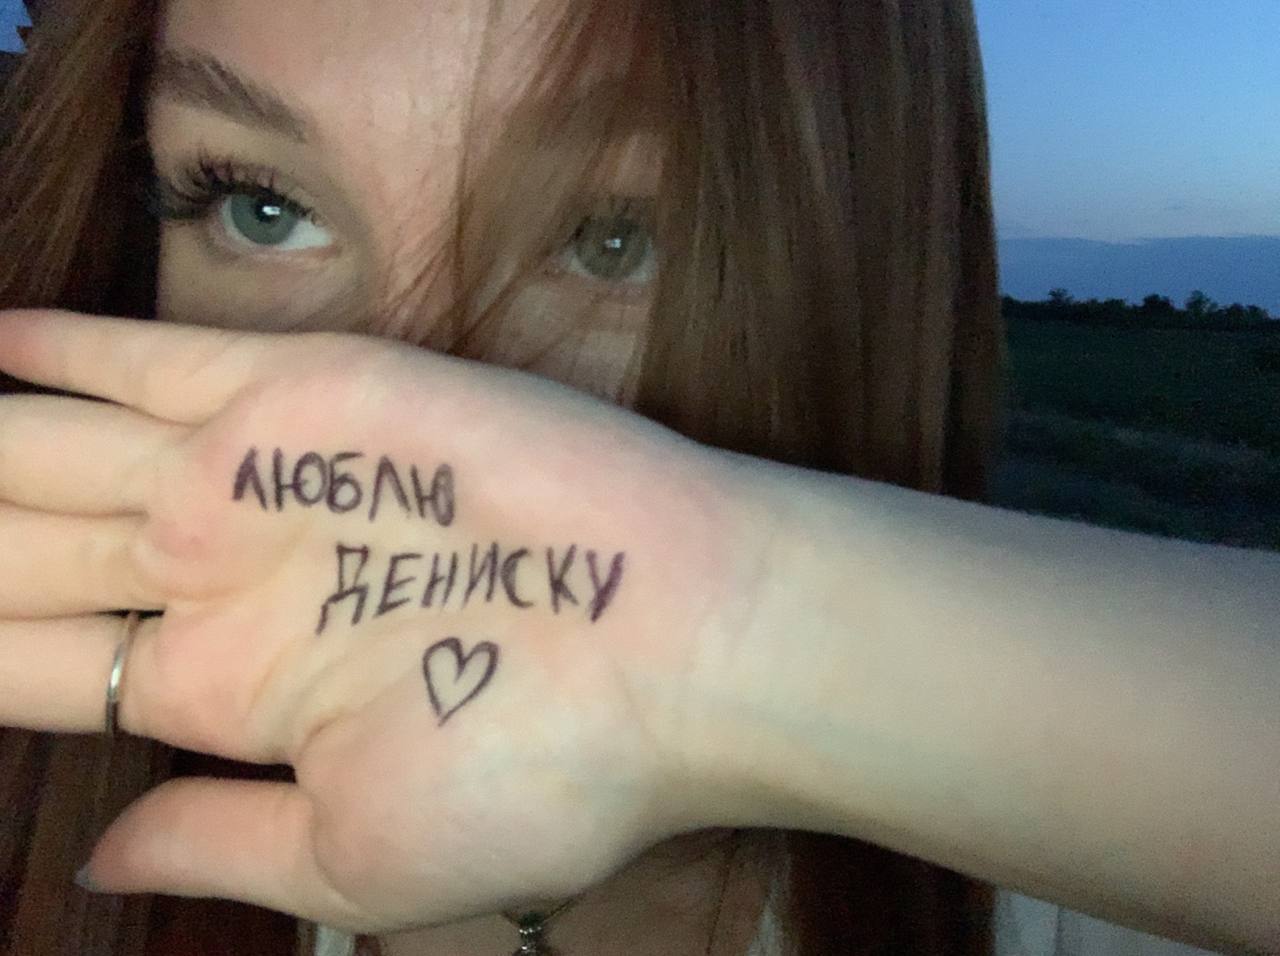 ЛЮБЛЮ
ДЕНИСКУ